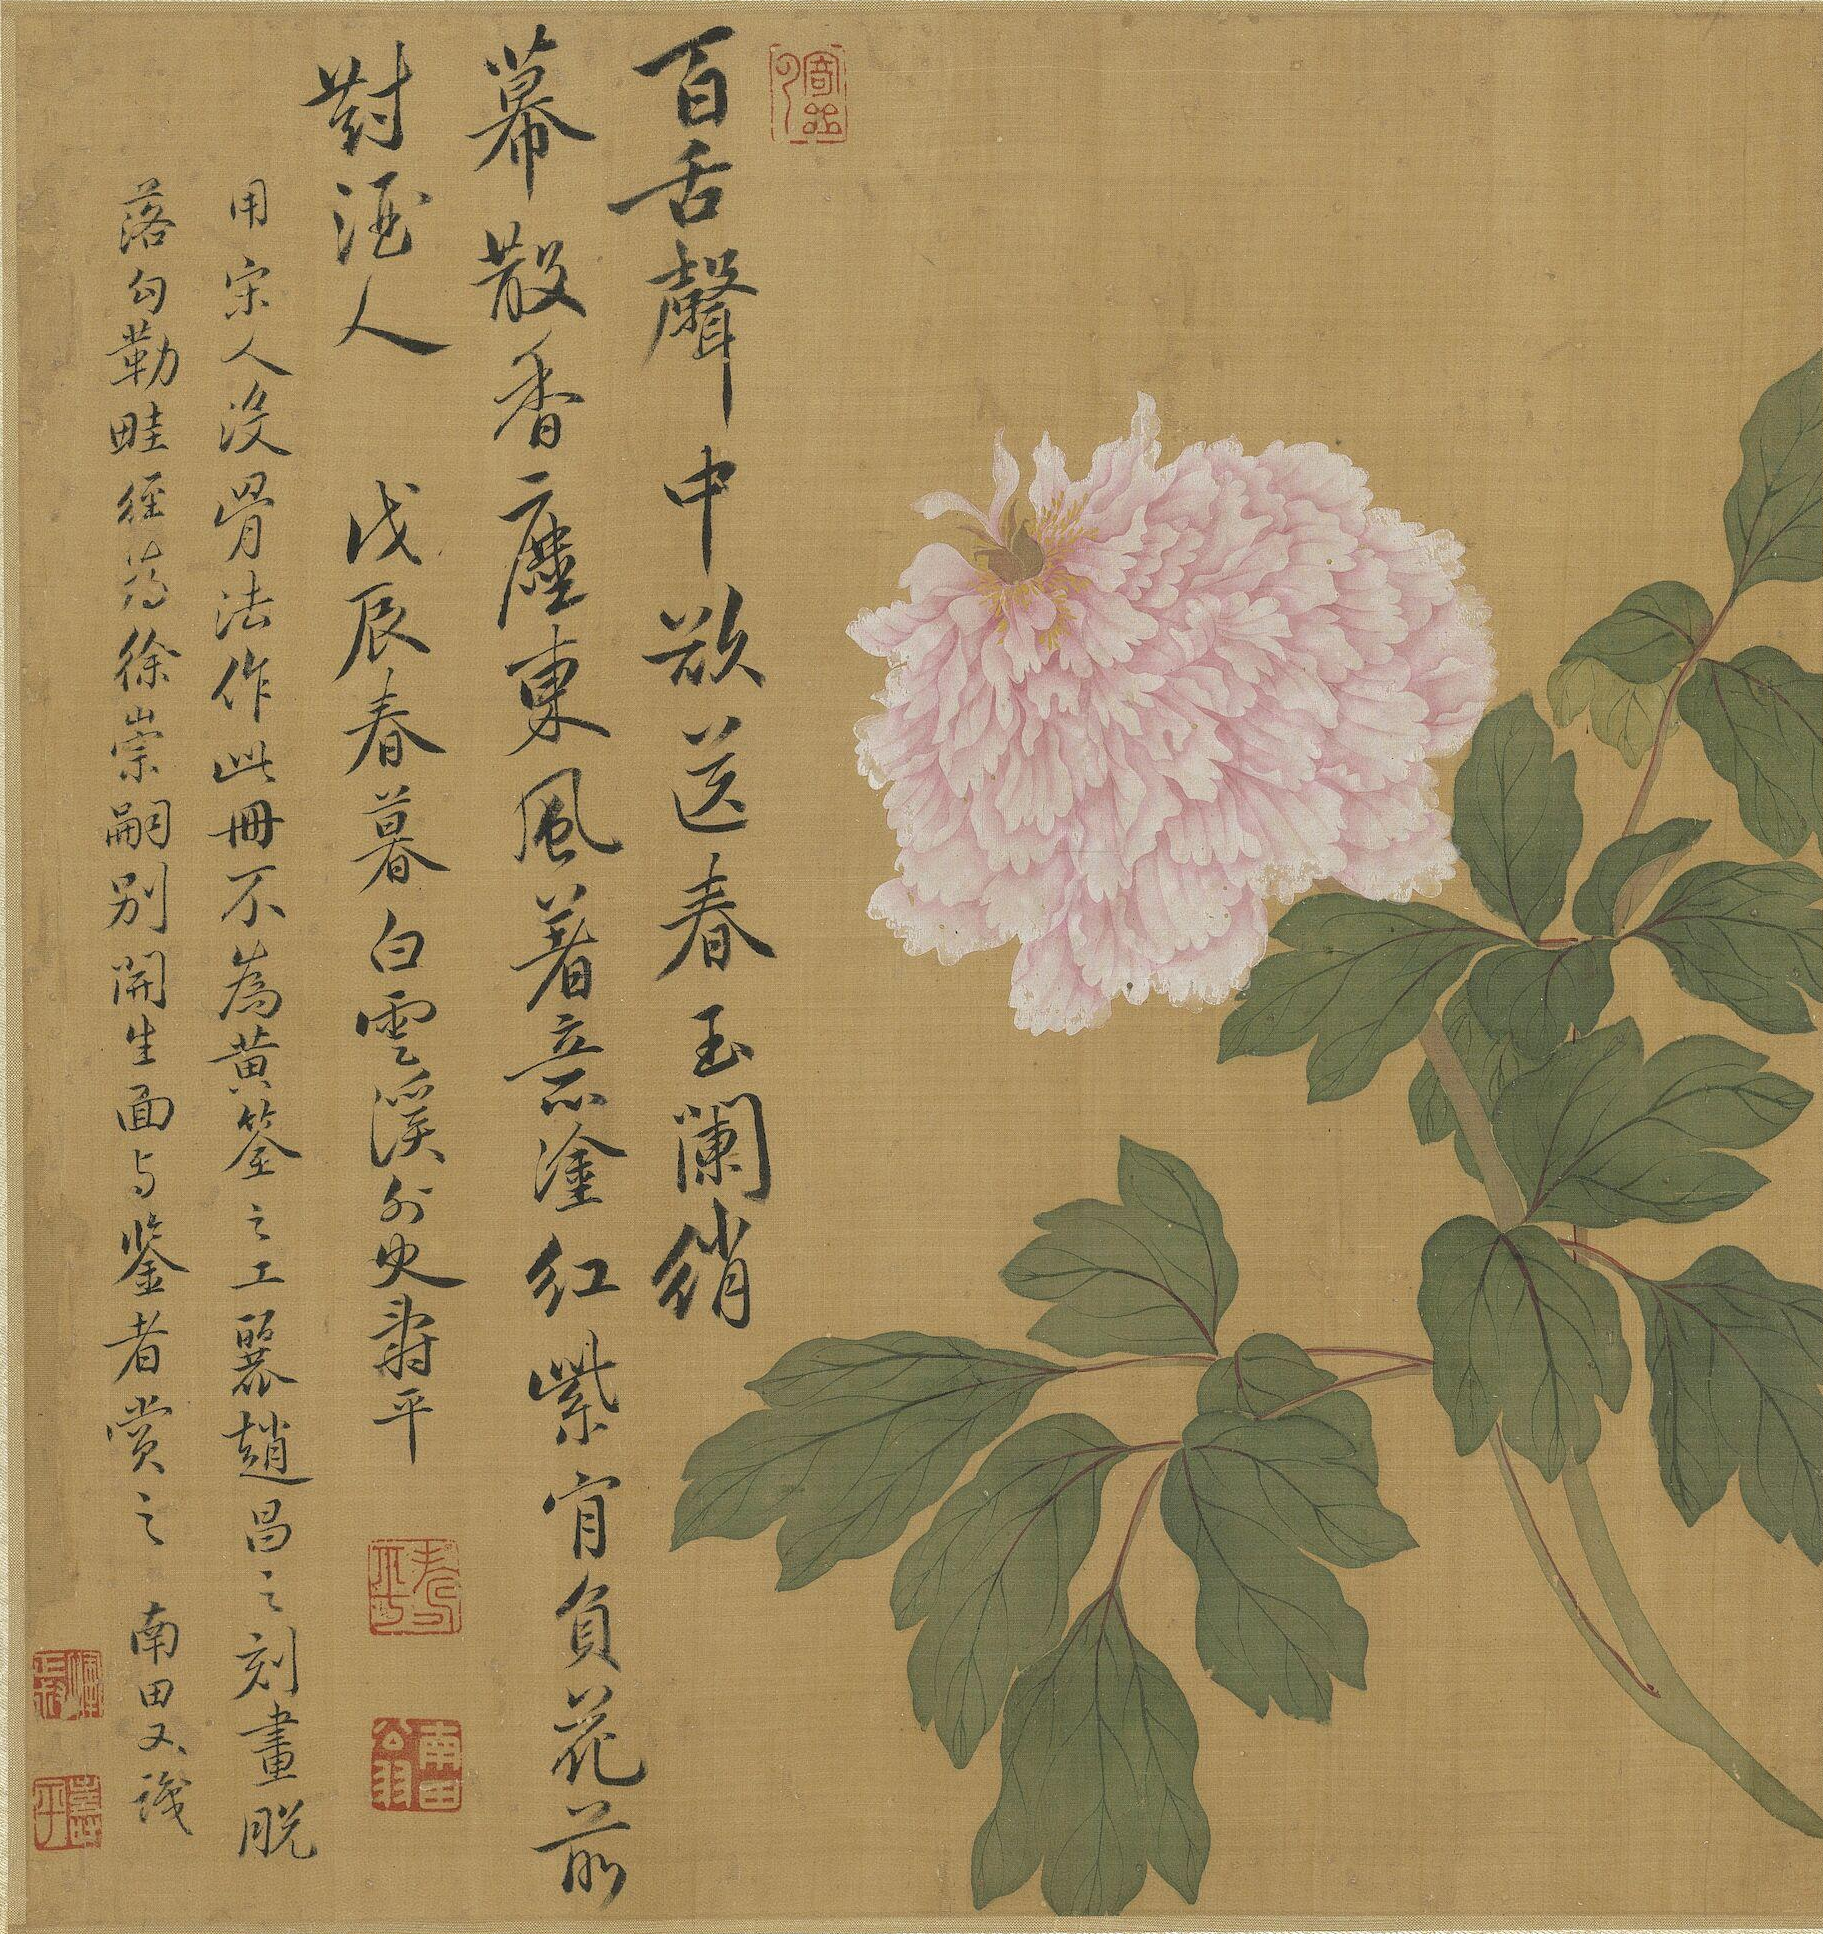 百舌聲中欲送春玉闌綃
幕散香塵東風著意塗紅紫肎負花前
對酒人 戊辰春暮白雲溪外史壽平
用宋人沒骨法作此冊不為黃筌之工麗趙昌之刻畫脫
落勾勒畦徑蕩徐崇嗣別開生面与鑒者賞之 南田又識
壽平
南田公羽
壽平